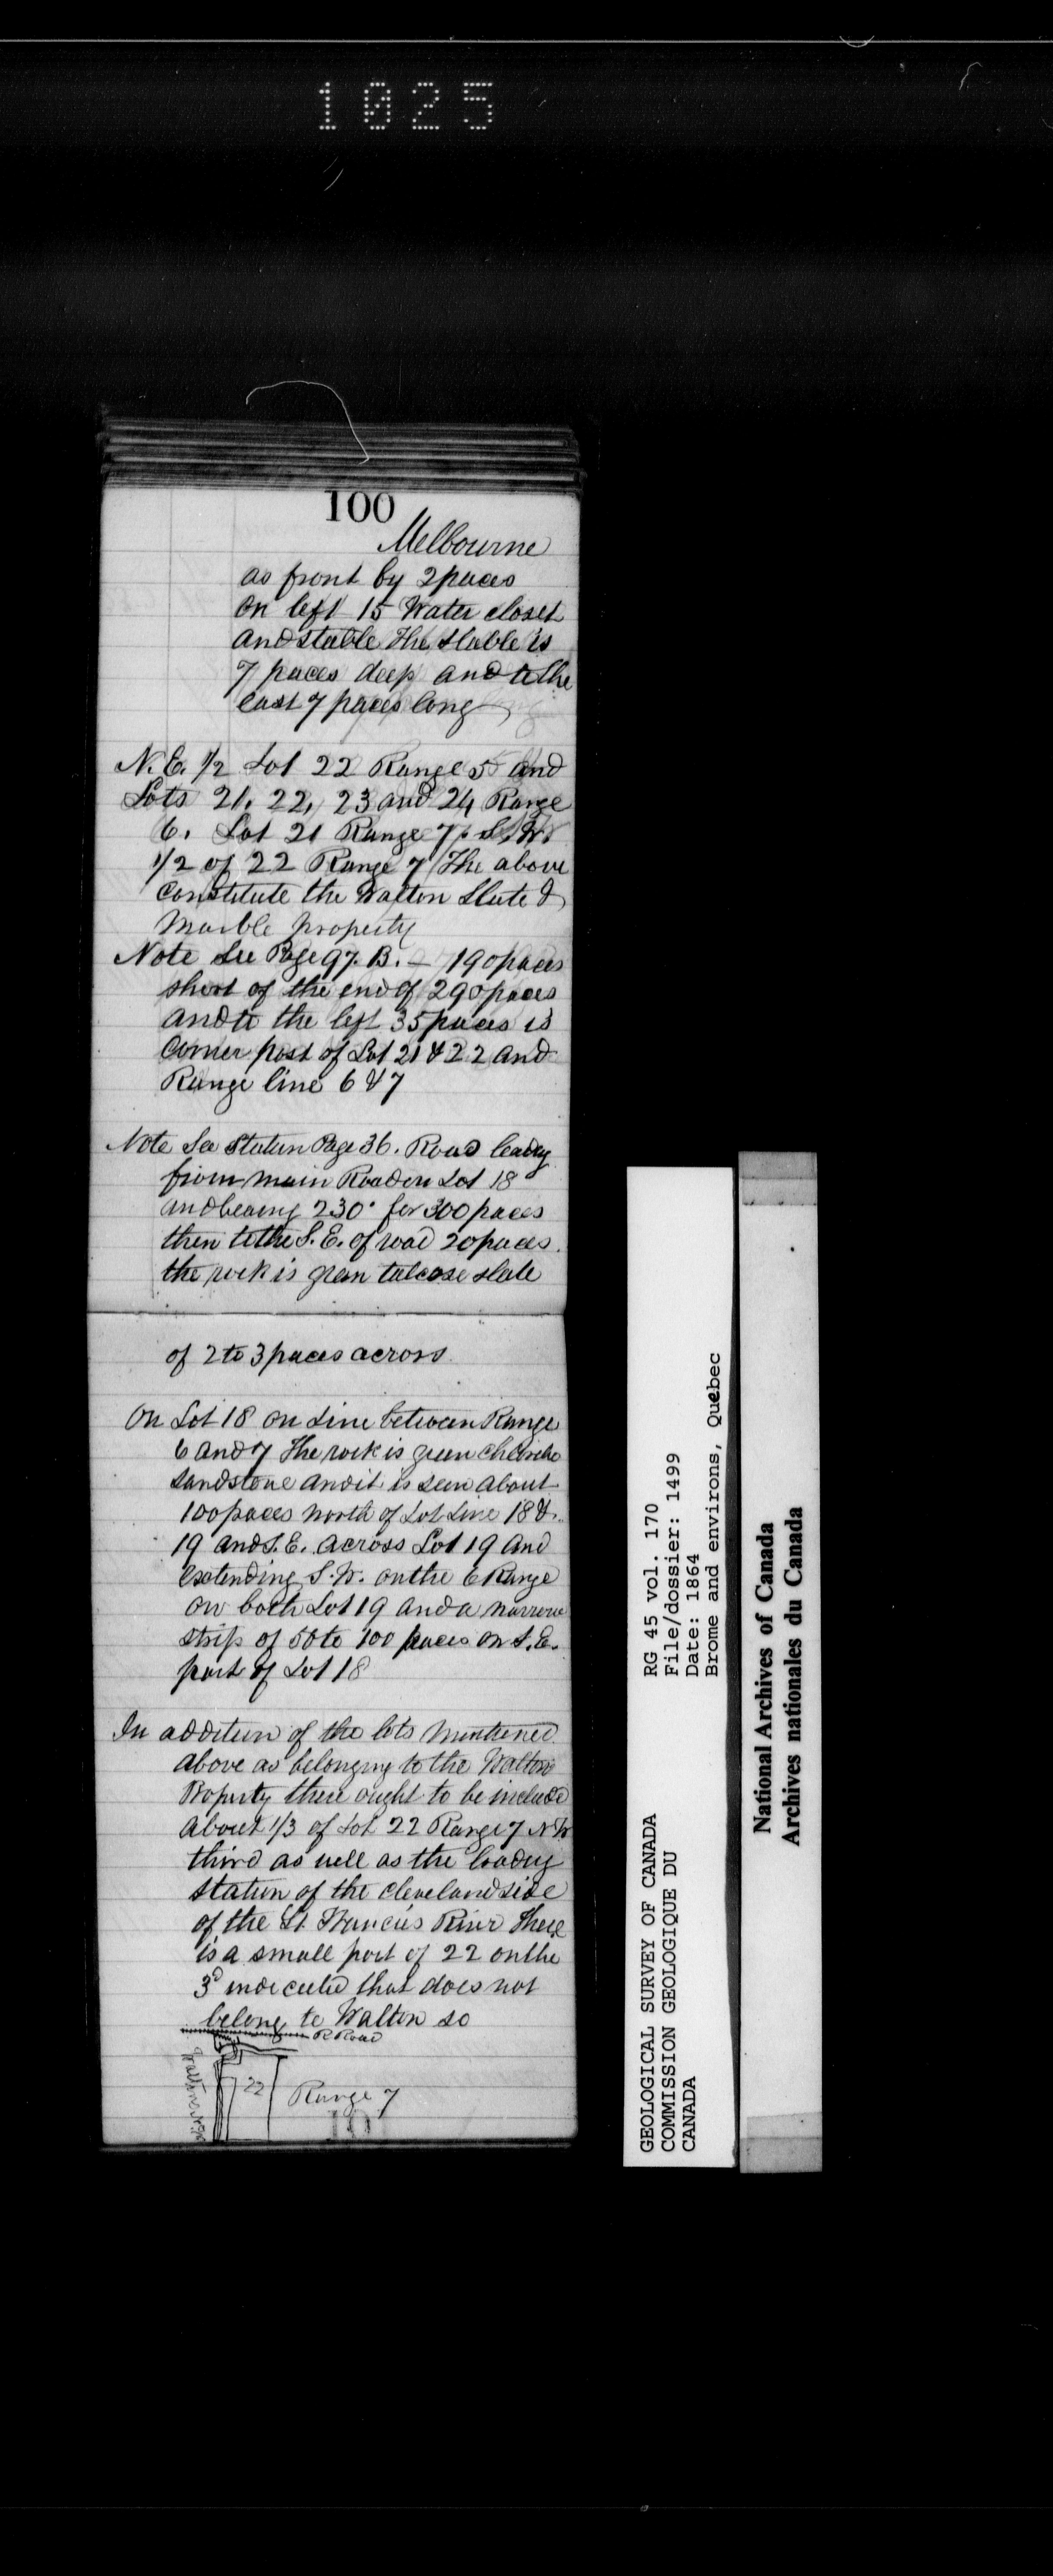 1025
100
Melbourne
as front by 2 paces
on left 15 Water closet
and stable The stable is
7 paces deep and to the
east 7 paces long
N.E. 1/2 Lot 22 Range 5 and
Lots 21, 22, 23 and 24 Range
6. Lot 21 Range 7. S.W.
1/2 of 22 Range 7 The above
constitute the Walton Slate &
Marble property
Note See Page 97. B. — 190 paces
short of the end of 290 paces
and to the left 35 paces is
corner post of Lot 21 & 22 and
Range line 6 & 7
Note See Station Page 36. Road leadg
from main Road on Lot 18
and bearing 230° for 300 paces
then to the S.E. of road 20 paces.
the rock is green talcose slate
of 2 to 3 paces across
On Lot 18 on Line between Range
6 and 7 The rock is green
sandstone and it is seen about
100 paces north of Lot Line 18 &
19 and S.E. across Lot 19 and
extending S.W. on the 6 Range
on both Lot 19 and a narrow
strip of 50 to 100 paces on S.E.
part of Lot 18
In addition of the lots mentioned
above as belonging to the Walton
Property there ought to be include
about 1/3 of Lot 22 Range 7 N W
third as well as the loadig
station of the cleveland side
of the St. Francis River There
is a small part of 22 on the
3d indicated that does not
belong to Walton so
R Road
22
Range 7
GEOLOGICAL SURVEY OF CANADA
COMMISSION GEOLOGIQUE DU
CANADA
RG 45 vol. 170
File/dossier: 1499
Date: 1864
Brome and environs, Quebec
National Archives of Canada
Archives nationales du Canada